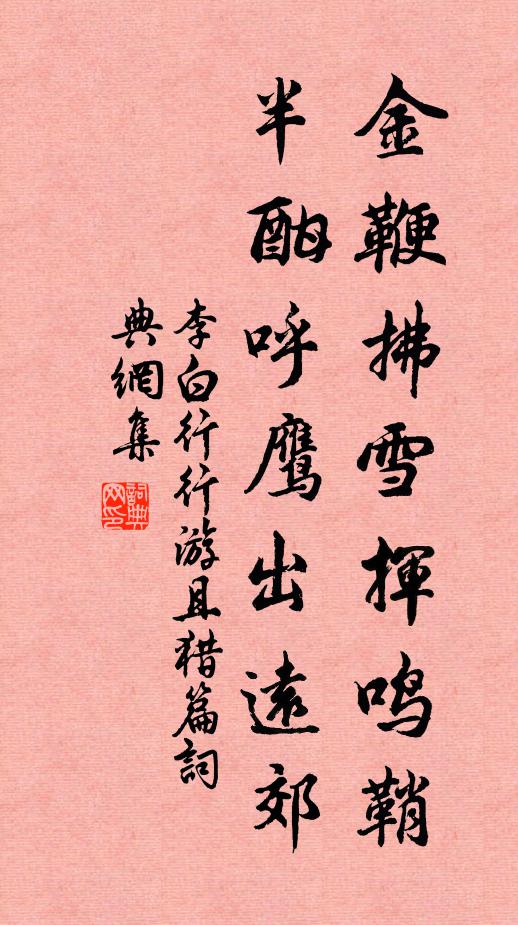 金鞭拂雪揮鸣鞘
半酣呼鹰出遠郊
李白行行游且猎篇詞
典網集
詞典网印